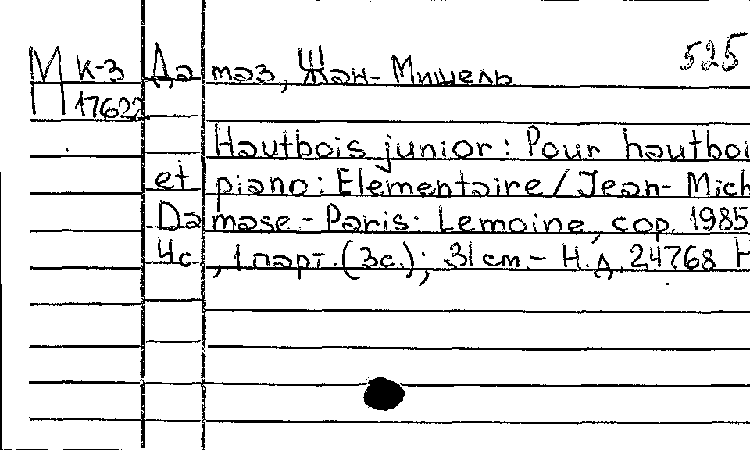 М к-3 Дамаз, Жан-Мишель 525
П 17622
Hautbois junior: Pour hautboi
et piano: Elementaire / Jean-Mich
Damase.- Paris: Lemoine, cop. 1985
4с., 1 парт. (3с.); 31 см.- Н.д. 24768 H